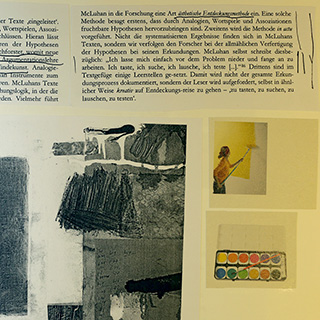 er Texte ‚eingleitet'.
Wortspielen, Assozi-
chlüssen. Hieran lässt
eren der Hypothesen
chforster, womit neue
Argumentationslehre
findekunst. Analogie-
Instrumente zum
eren. McLuhans Texte
hungslogik, in der die
den. Vielmehr führt
McLuhan in die Forschung eine Art ästhetische Entdeckungsmethode ein. Eine solche
Methode besagt erstens, dass durch Analogien, Wortspiele und Assoziationen
fruchtbare Hypothesen hervorzubringen sind. Zweitens wird die Methode in actu
vorgeführt. Nicht die systematisierten Ergebnisse finden sich in McLuhans
Texten, sondern wir verfolgen den Forscher bei der allmählichen Verfertigung
der Hypothesen bei seinen Erkundungen. McLuhan selbst schreibt diesbe-
züglich: „Ich lasse mich einfach vor dem Problem nieder und fange an zu
arbeiten. Ich taste, ich suche, ich lausche, ich teste [...]." Drittens sind im
Textgefüge einige Leerstellen ge-setzt. Damit wird nicht der gesamte Erkun-
dungsprozess dokumentiert, sondern der Leser wird aufgefordert, selbst in ähnli-
cher Weise kreativ auf Entdeckungs-reise zu gehen – ‚zu tasten, zu suchen, zu
lauschen, zu testen'.